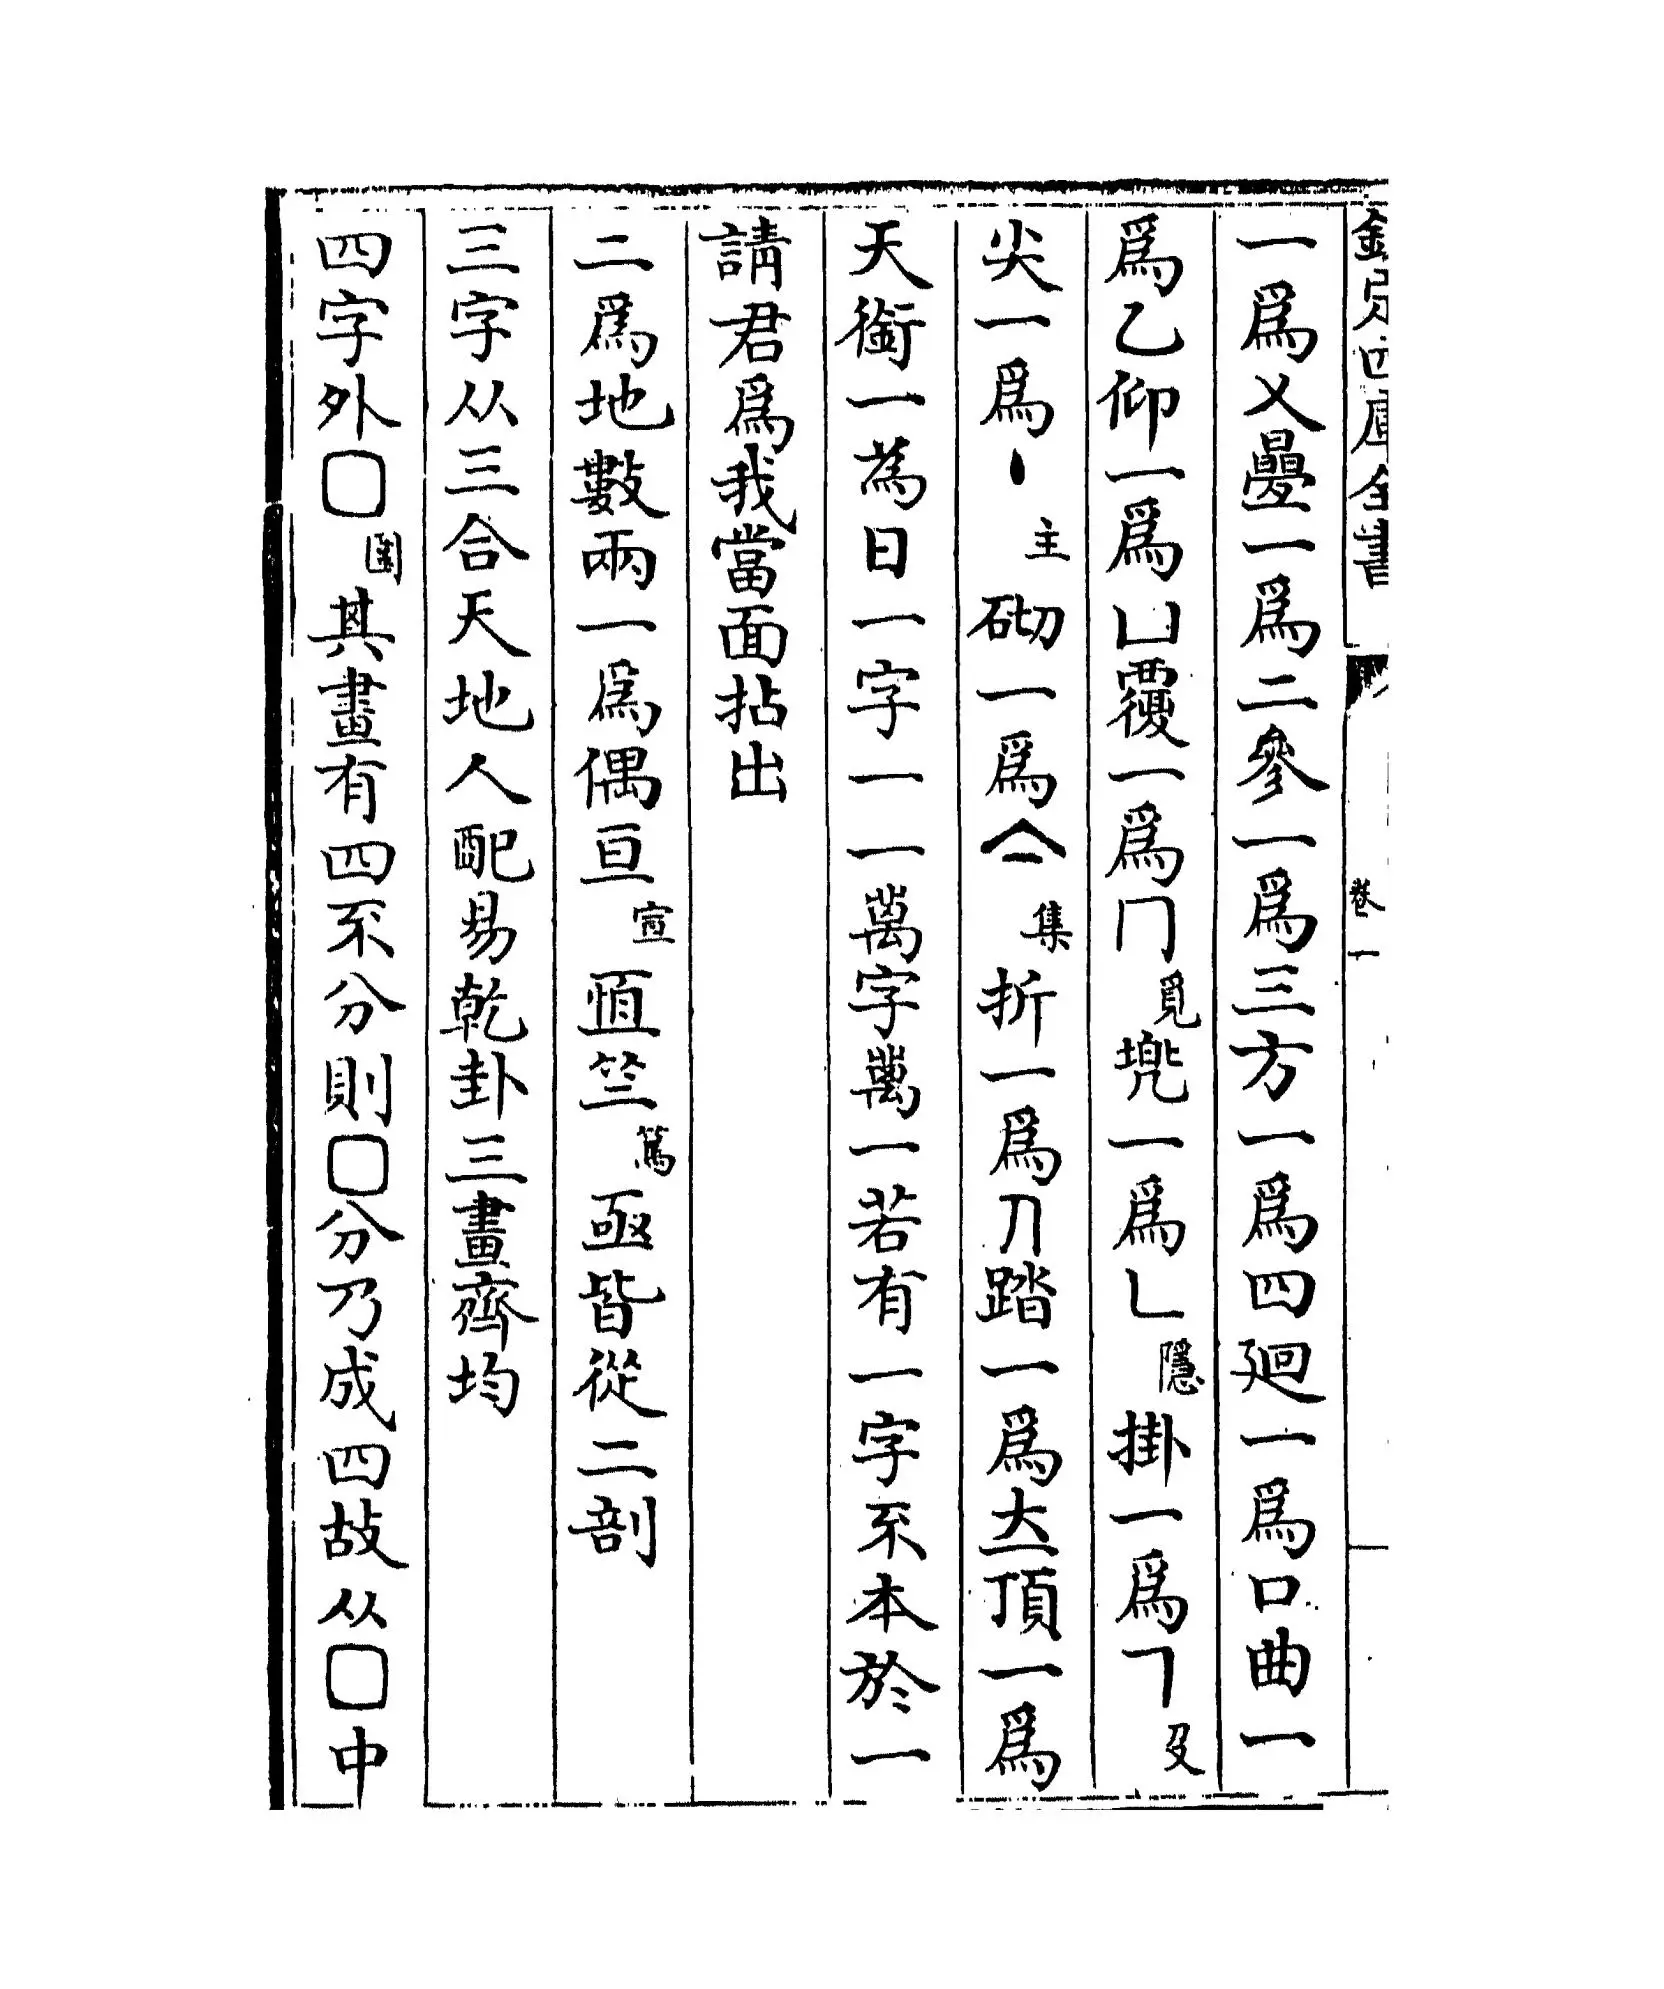 欽定四庫全書 卷一
一爲乂疊一爲二參一爲三方一爲四廻一爲口曲一
爲乙仰一爲凵覆一爲冂覓兠一爲乚隱掛一爲㇕𠬛
尖一爲丶主砌一爲亼集折一爲刀踏一爲𡗓頂一爲
天銜一為日一字一一萬字萬一若有一字不本於一
請君爲我當面拈出
二爲地數兩一爲偶亘宣恆竺篤亟皆從二剖
三字从三合天地人配易乾卦三畫齊均
四字外囗圍其畫有四不分則囗分乃成四故从囗中